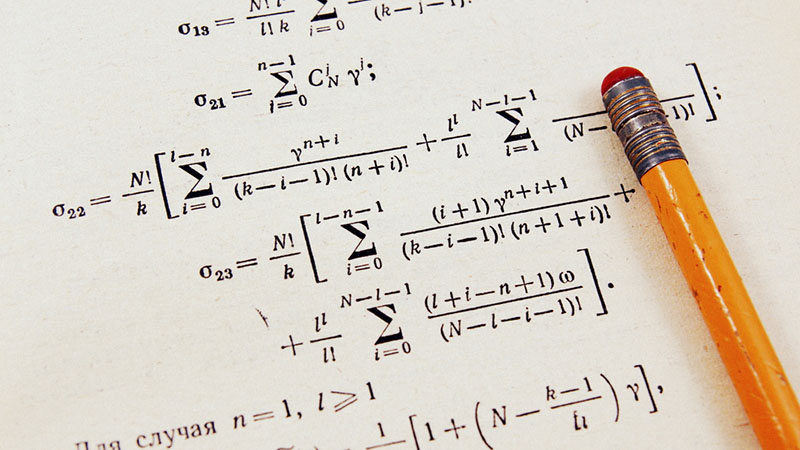 σ₁₃ = N! l / l! k ∑ i=0 (k−j−1)!
σ₂₁ = ∑_{i=0}^{n−1} C_N^j γ^j;
σ₂₂ = N!/k [ ∑_{i=0}^{l−n} γ^{n+i} / (k−i−1)! (n+i)! + l^l/l! ∑_{i=1}^{N−l−1} / (N− 1)! ];
σ₂₃ = N!/k [ ∑_{i=0}^{l−n−1} (i+1) γ^{n+i+1} / (k−i−1)! (n+1+i)! +
+ l^l/l! ∑_{i=0}^{N−l−1} (l+i−n+1) ω / (N−l−i−1)! ].
Для случая n=1, l⩾1
= 1 [1+(N− k−1 / ) γ],